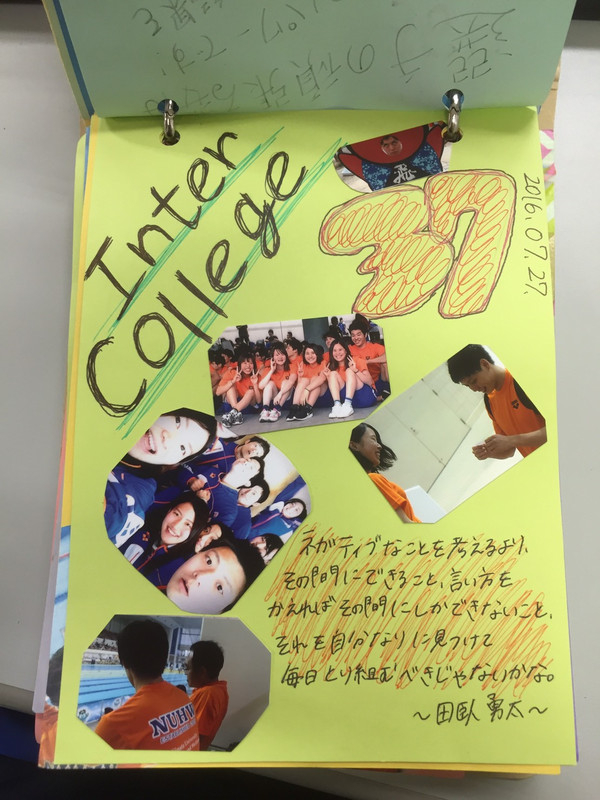 Inter
College
37
2016.07.27.
NUHW
ネガティブなことを考えるより、
その間にできること、言い方を
かえればその間にしかできないこと、
それを自分なりに見つけて
毎日とり組むべきじゃないかな。
～田臥 勇太～